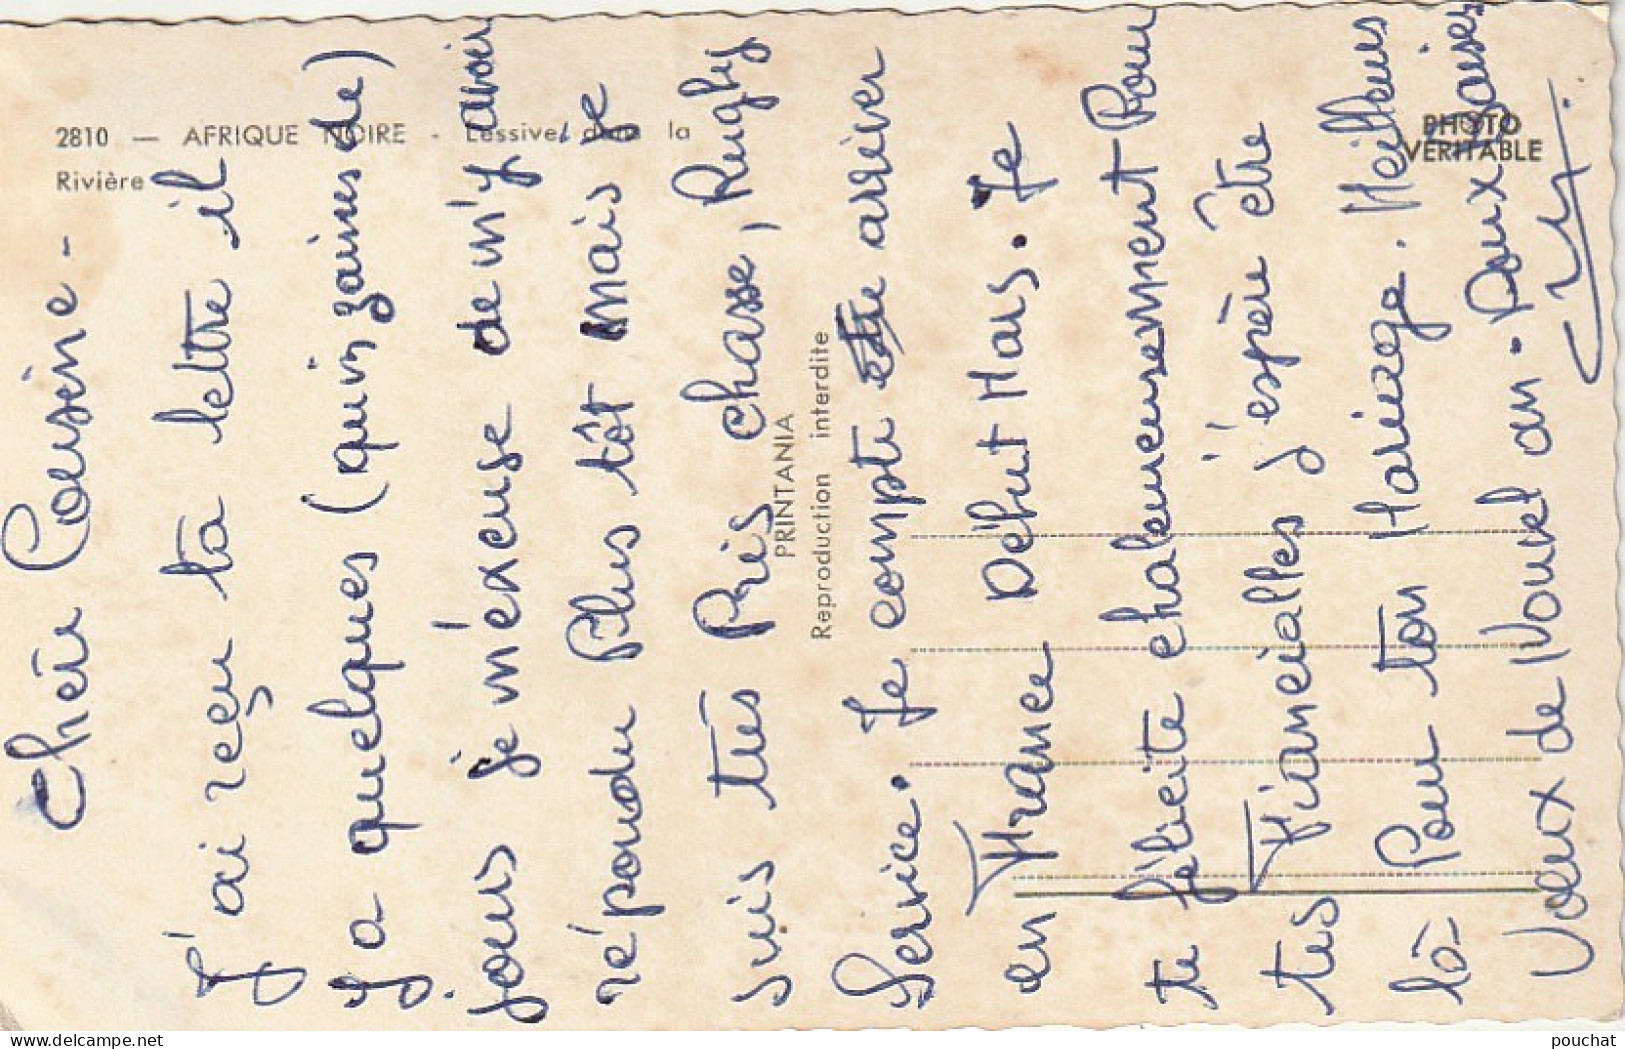 2810 — AFRIQUE NOIRE - Lessive dans la
Rivière
PHOTO
VÉRITABLE
PRINTANIA
Reproduction interdite
Chère Cousine -
J'ai reçu ta lettre il
y a quelques (quinzaines de)
jours je m'excuse de m'y avoir
répondu Plus tôt mais je
suis très Pris chasse, Rugby
Service. Je compte être arriver
en France Début Mars. Je
te félicite chaleureusement Pour
tes Fiancialles j'espère être
là Pour ton Mariage. Meilleurs
Voeux de Nouvel an - Doux Baises
delcampe.net
pouchat